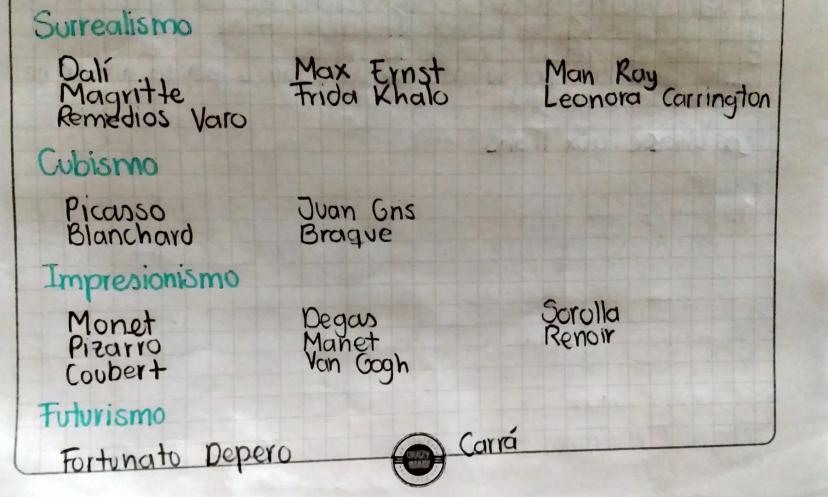 Surrealismo
Dalí Max Ernst Man Ray
Magritte Frida Khalo Leonora Carrington
Remedios Varo
Cubismo
Picasso Juan Gris
Blanchard Braque
Impresionismo
Monet Degas Sorolla
Pizarro Manet Renoir
Coubert Van Gogh
Futurismo
Fortunato Depero Carrá